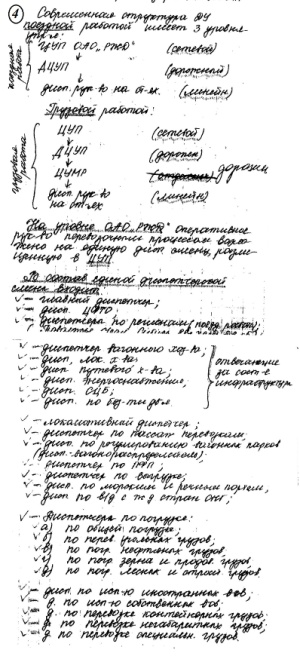 ④ Современная структура ДУ
поездной работой имеет 3 уровня
упр-е:
поездная работа
ЦУП ОАО "РЖД" (сетевой)
ДЦУП (дорожный)
дисп. рук-во на от-ях. (линейн)
Грузовой работой:
грузовая работа
ЦУП (сетевой)
ДЦУП (дорожн)
ЦУМР дорожн
дисп рук-во (линейн)
на от-ях
На уровне ОАО "РЖД" оперативное
рук-во перевозочным процессом
на единую дисп смену, разме-
щенную в ЦУП
В состав единой диспетчерской
смены входит:
✓- главный диспетчер;
✓- дисп. ЦФТО;
✓- диспетчеры по регионам (поезд. работа);
✓- диспетчер вагонного хоз-ва;
✓- дисп. лок. х-ва;
✓- дисп путевого х-ва;
✓- дисп. энергоснабжение;
✓- дисп. СЦБ;
✓- дисп. по без-ти дв-я.
отвечающие
за сост-е
инфраструктуры
✓- локомотивный диспетчер;
✓- диспетчер по пассаж перевозкам;
✓- дисп. по регулированию вагонных парков
(дисп. вагонораспределитель);
✓- диспетчер по
✓- диспетчер по выгрузке;
✓- дисп. по морским и речным портам;
✓- дисп по вз/д с ж д стран СНГ;
✓- Диспетчера по погрузке:
✓а) по общей погрузке;
✓б) по перев. угольных грузов;
✓в) по погр. нефтеных грузов;
✓г) по погр зерна и продов грузов
✓д) по погр. лесных и строй грузов
✓- дисп. по исп-ю иностранных в-ов;
✓- д. по исп-ю собственных в-ов;
✓- д. по перевозке контейнерных грузов;
✓- д. по перевозке негабаритных грузов;
✓- д. по перевозке специальн. грузов.